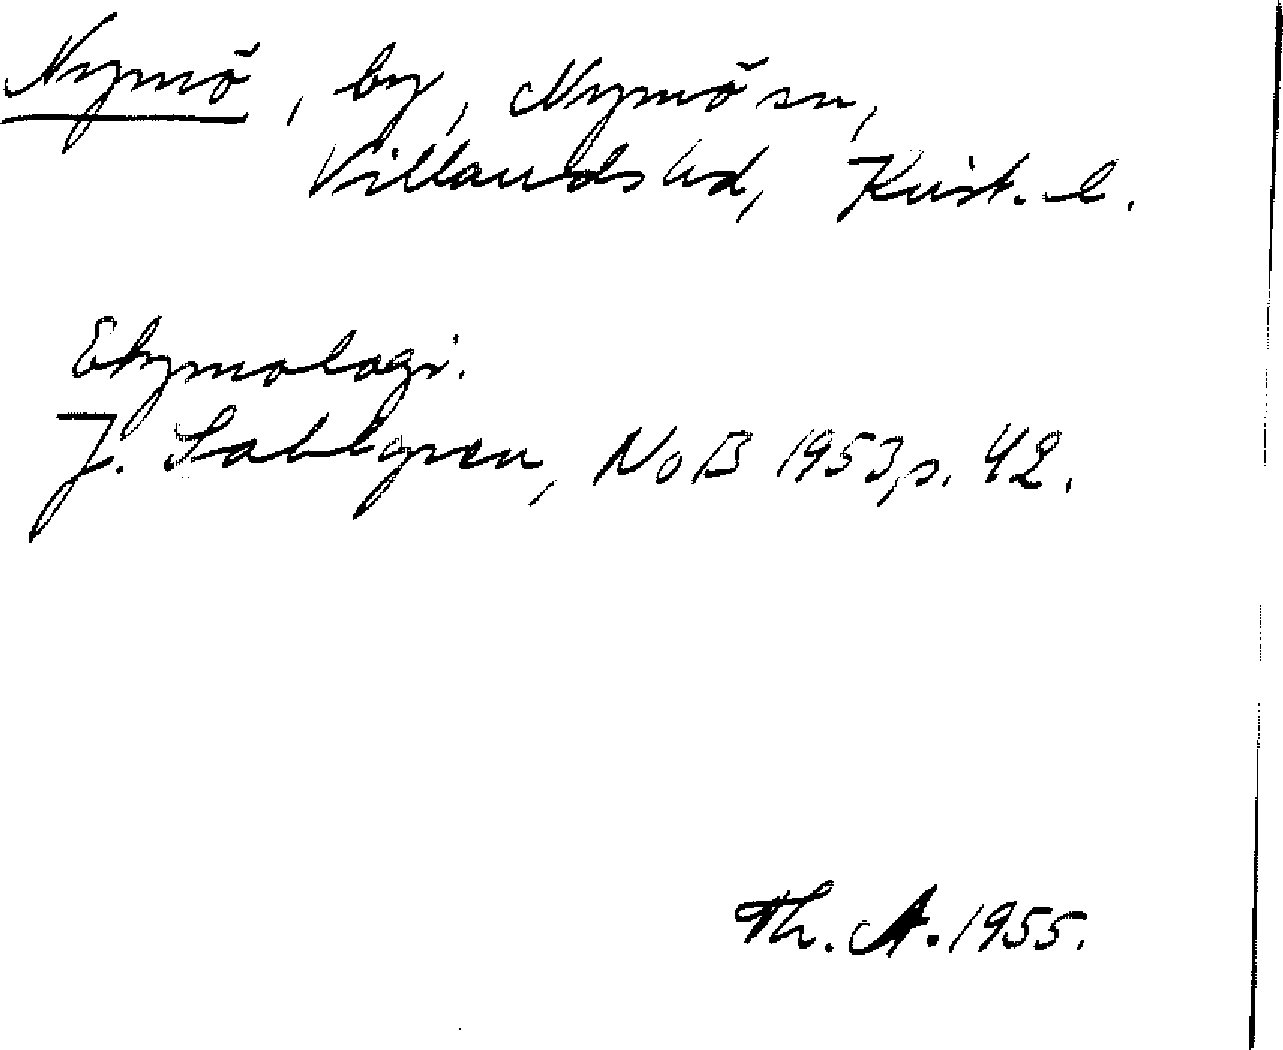 Nymö, by, Nymö sn,
Villands hd, Krist. l.
Etymologi.
J. Sahlgren, NoB 1953, s. 42.
Th. A. 1955.